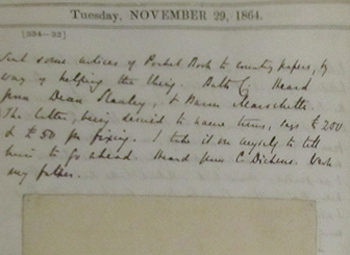 Tuesday, NOVEMBER 29, 1864.
[334—32]
Sent some notices of Pocket Book to country papers, by
way of helping the thing. Bath C. Heard
from Dean Stanley, & Baron Marochetti.
The latter, being desired to name terms, says £200
& £50 for fixing. I take it on myself to tell
him to go ahead. Heard from C. Dickens. Wrote
my father.